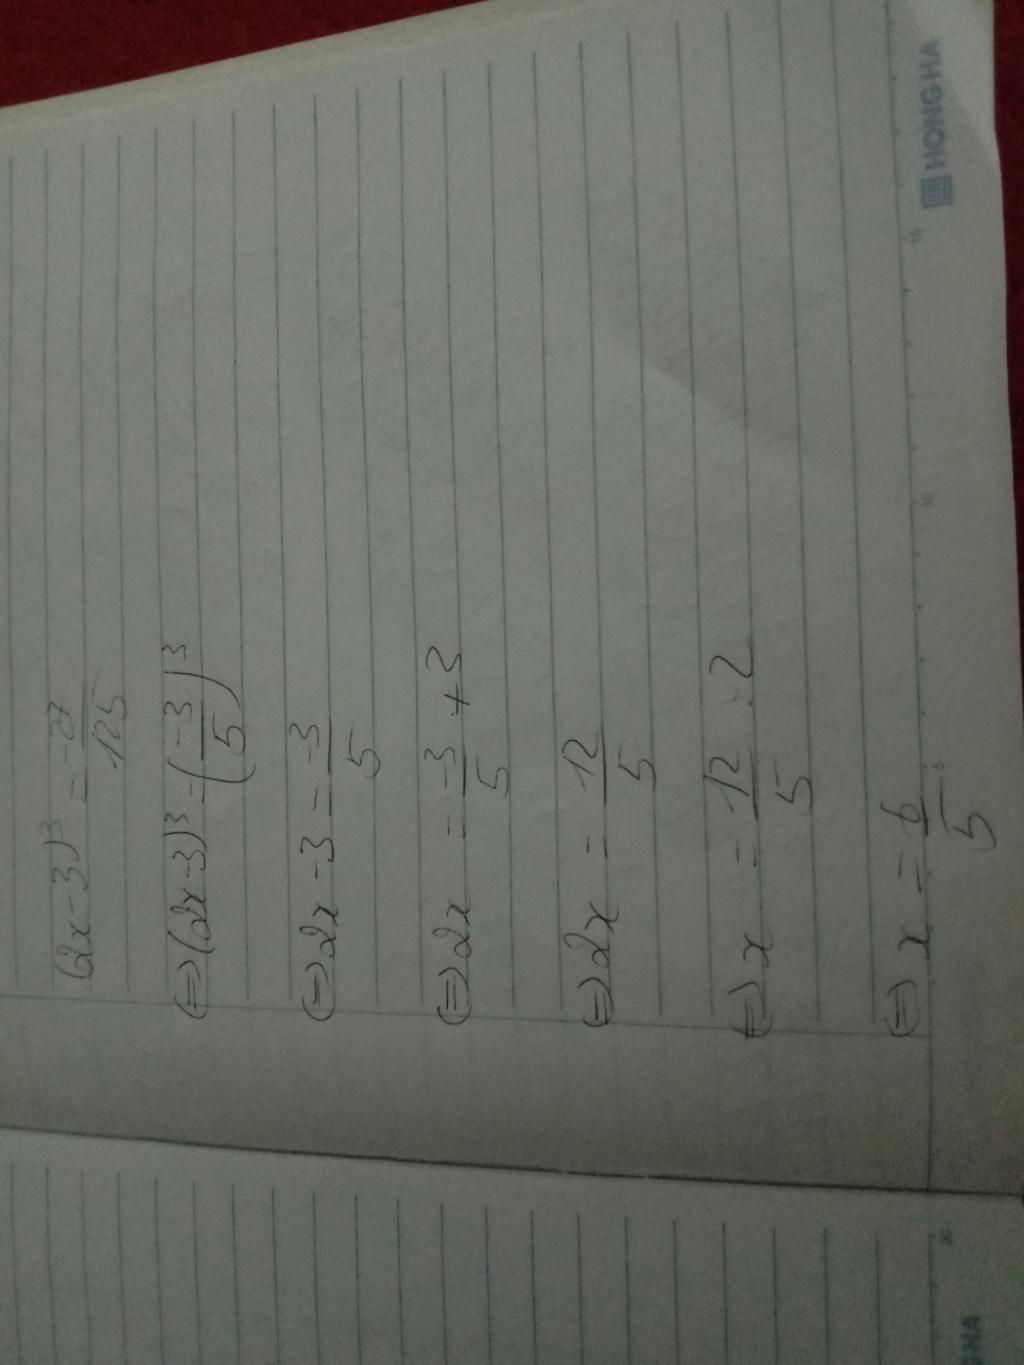 (2x-3)³ = -27/125
(=) (2x-3)³ = (-3/5)³
(=) 2x-3 = -3/5
(=) 2x = -3/5 + 3
(=) 2x = 12/5
(=) x = 12/5 : 2
(=) x = 6/5
HONG HA
5
10
15
20
HA